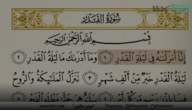 سُورَةُ الْقَدْرِ
بِسْمِ اللَّهِ الرَّحْمَٰنِ الرَّحِيمِ
إِنَّا أَنزَلْنَاهُ فِي لَيْلَةِ الْقَدْرِ ١ وَمَا أَدْرَاكَ مَا لَيْلَةُ الْقَدْرِ ٢
لَيْلَةُ الْقَدْرِ خَيْرٌ مِّنْ أَلْفِ شَهْرٍ ٣ تَنَزَّلُ الْمَلَائِكَةُ وَالرُّوحُ